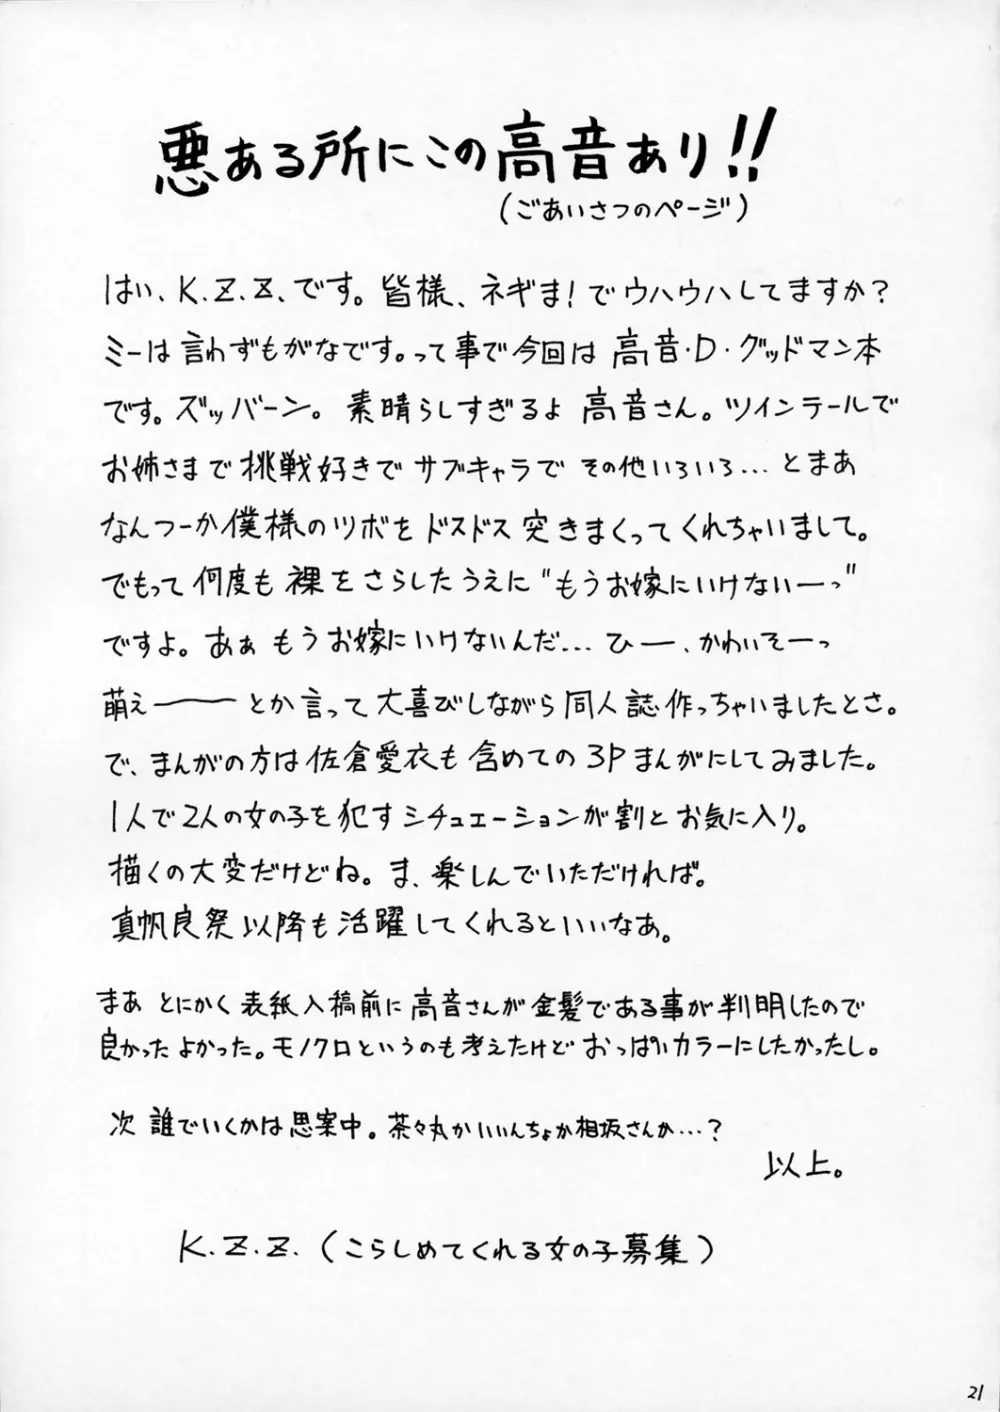 悪ある所にこの高音あり!!
(ごあいさつのページ)
はい、K.Z.Z.です。皆様、ネギま!でウハウハしてますか?
ミーは言わずもがなです。って事で今回は高音・D・グッドマン本
です。ズッバーン。素晴らしすぎるよ高音さん。ツインテールで
お姉さまで挑戦好きでサブキャラでその他いろいろ…とまあ
なんつーか僕様のツボをドスドス突きまくってくれちゃいまして。
でもって何度も裸をさらしたうえに“もうお嫁にいけないーっ”
ですよ。あぁもうお嫁にいけないんだ…ひー、かわいそーっ
萌えーーとか言って大喜びしながら同人誌作っちゃいましたとさ。
で、まんがの方は佐倉愛衣も含めての3Pまんがにしてみました。
1人で2人の女の子を犯すシチュエーションが割とお気に入り。
描くの大変だけどね。ま、楽しんでいただければ。
真帆良祭以降も活躍してくれるといいなあ。
まあとにかく表紙入稿前に高音さんが金髪である事が判明したので
良かったよかった。モノクロというのも考えたけどおっぱいカラーにしたかったし。
次誰でいくかは思案中。茶々丸かいいんちょか相坂さんか…?
以上。
K.Z.Z.(こらしめてくれる女の子募集)
21